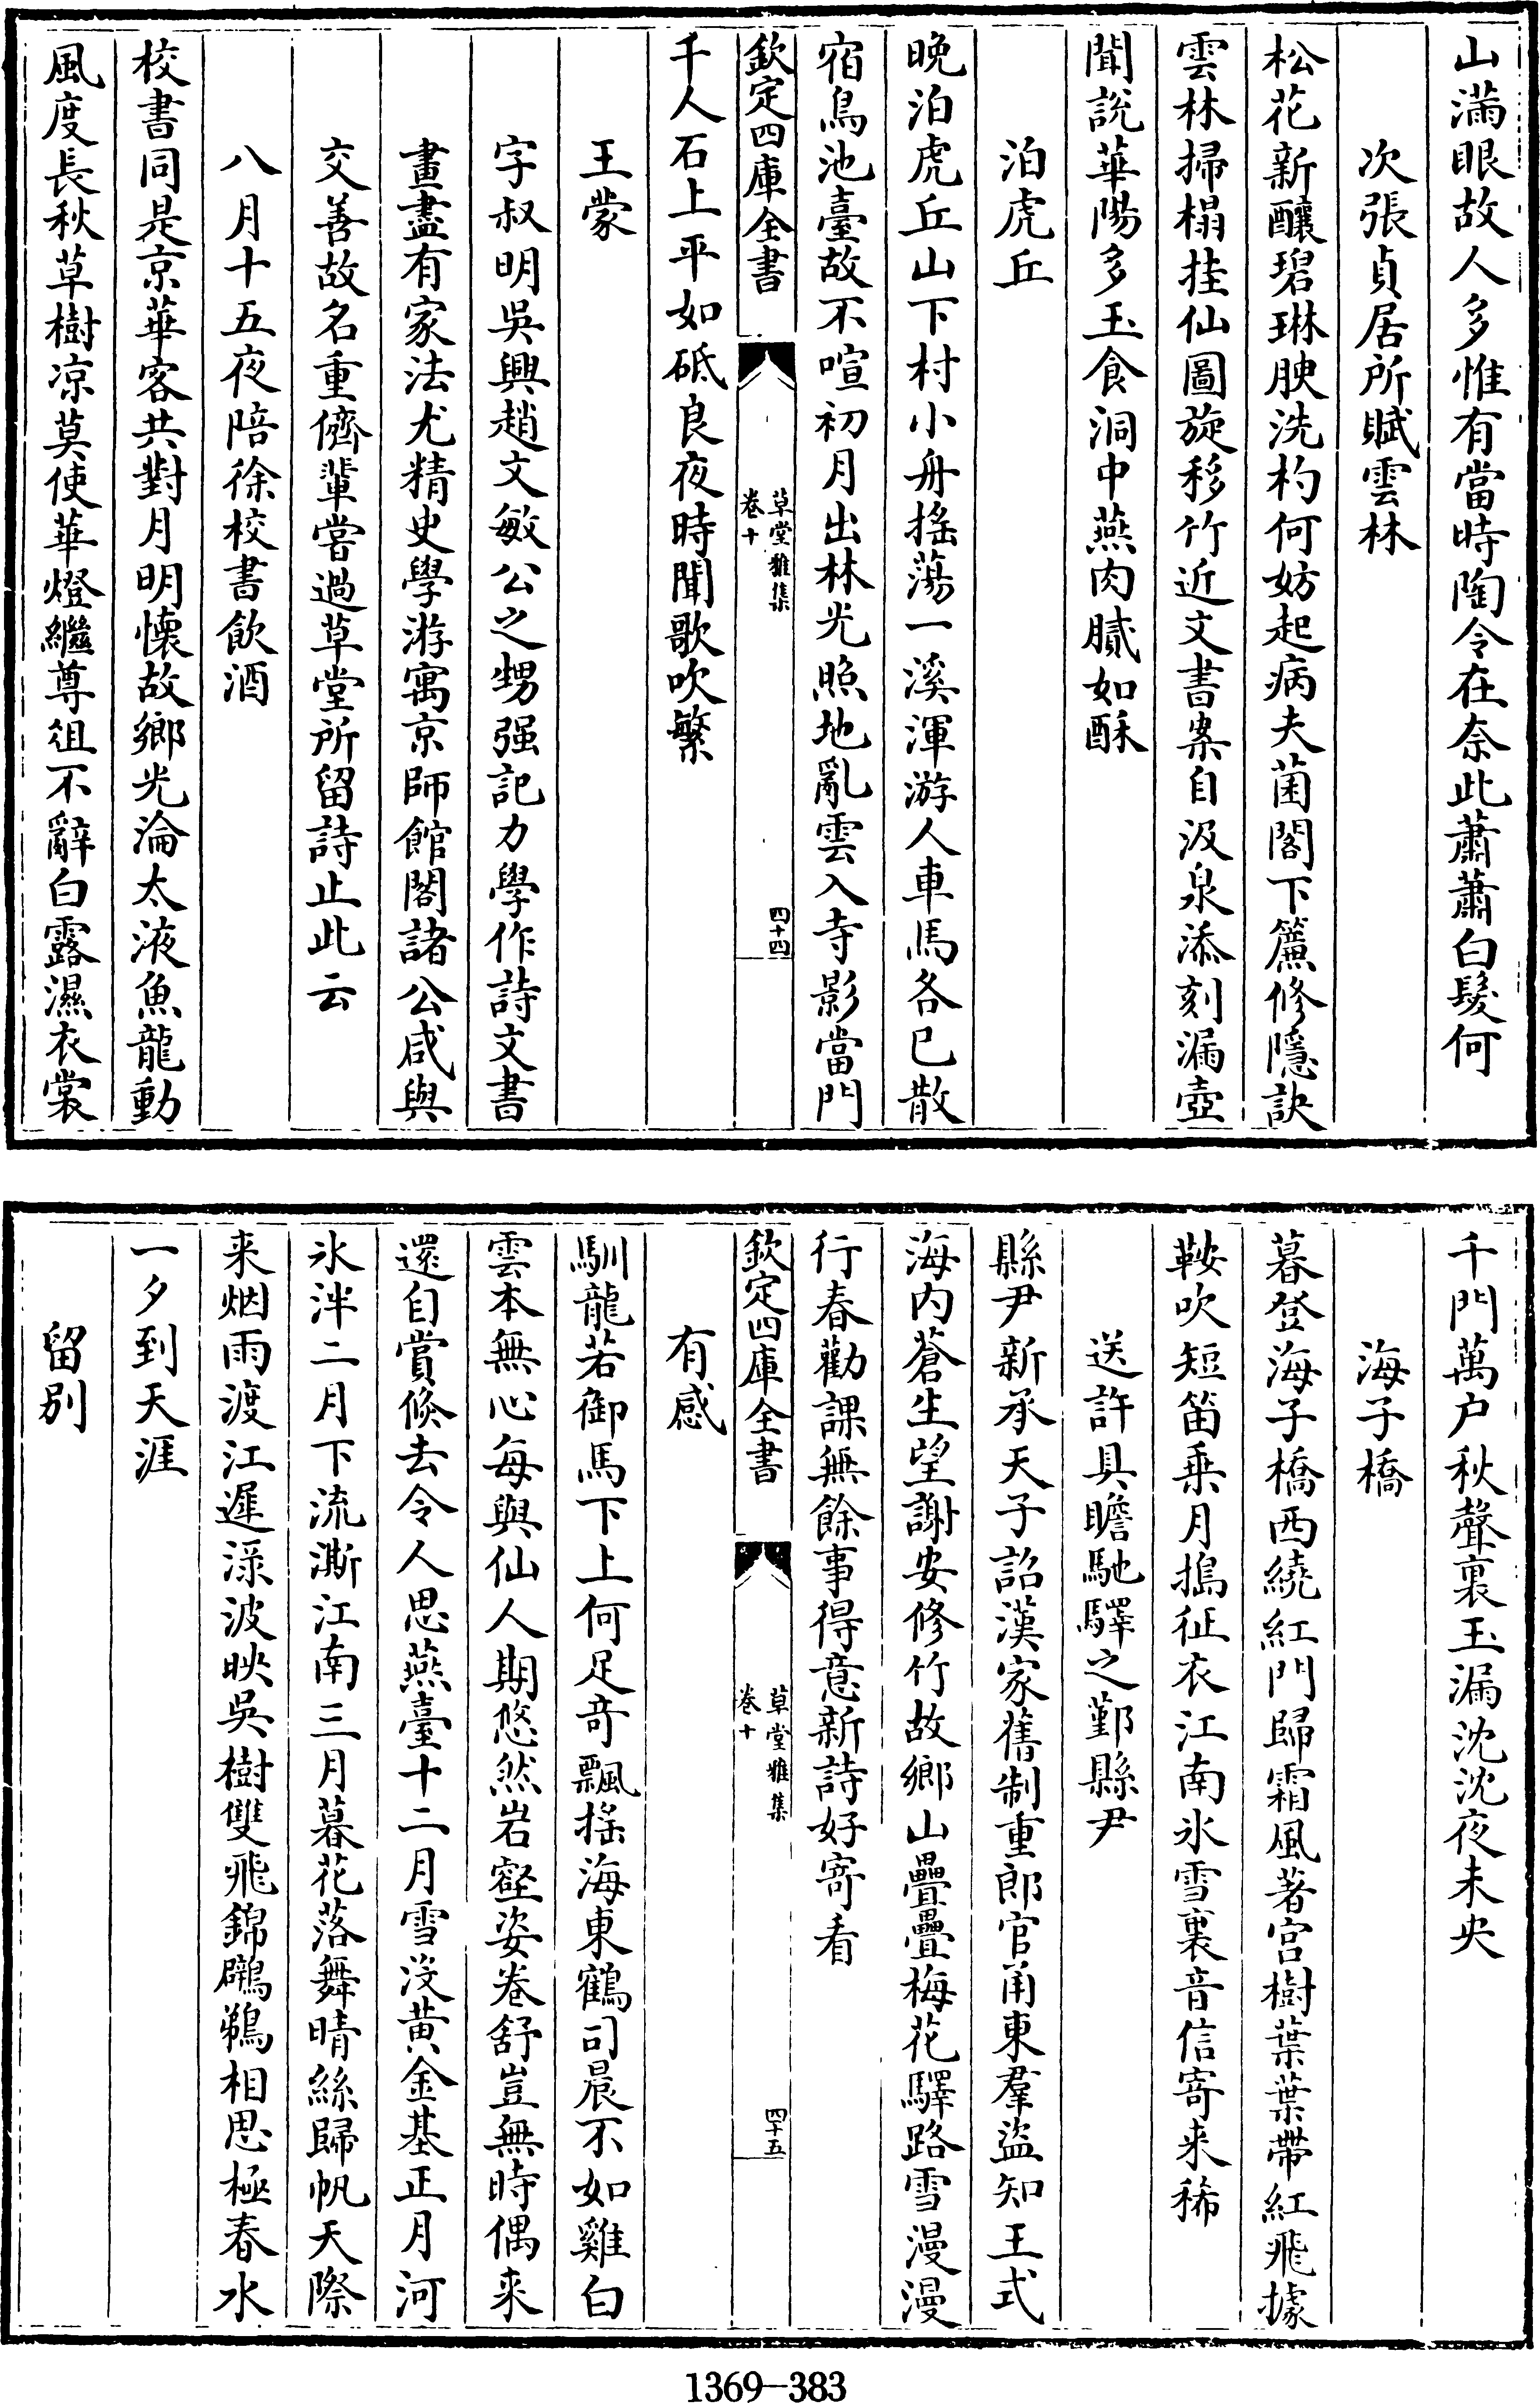 山滿眼故人多惟有當時陶令在奈此蕭蕭白髮何
次張貞居所賦雲林
松花新釀碧琳腴洗杓何妨起病夫菌閣下簾修隱訣
雲林掃榻挂仙圖旋移竹近文書案自汲泉添刻漏壺
聞說華陽多玉食洞中燕肉膩如酥
泊虎丘
晚泊虎丘山下村小舟搖蕩一溪渾游人車馬各已散
宿鳥池臺故不喧初月出林光照地亂雲入寺影當門
欽定四庫全書
草堂雅集
卷十
四十四
千人石上平如砥良夜時聞歌吹繁
王蒙
字叔明吳興趙文敏公之甥强記力學作詩文書
畫盡有家法尤精史學游寓京師館閣諸公咸與
交善故名重儕輩嘗過草堂所留詩止此云
八月十五夜陪徐校書飲酒
校書同是京華客共對月明懷故鄉光淪太液魚龍動
風度長秋草樹凉莫使華燈繼尊俎不辭白露濕衣裳
千門萬户秋聲裏玉漏沈沈夜未央
海子橋
暮登海子橋西繞紅門歸霜風著宫樹葉葉帶紅飛據
鞍吹短笛乗月搗征衣江南氷雪裏音信寄来稀
送許具瞻馳驛之鄞縣尹
縣尹新承天子詔漢家舊制重郎官甬東羣盗知王式
海内蒼生望謝安修竹故鄉山疊疊梅花驛路雪漫漫
行春勸課無餘事得意新詩好寄看
欽定四庫全書
草堂雅集
卷十
四十五
有感
馴龍若御馬下上何足竒飄揺海東鶴司晨不如雞白
雲本無心每與仙人期悠然岩壑姿卷舒豈無時偶来
還自賞倐去令人思燕臺十二月雪没黄金基正月河
氷泮二月下流澌江南三月暮花落舞晴絲歸帆天際
来烟雨渡江遲渌波映吳樹雙飛錦鸊鵜相思極春水
一夕到天涯
留别
1369—383